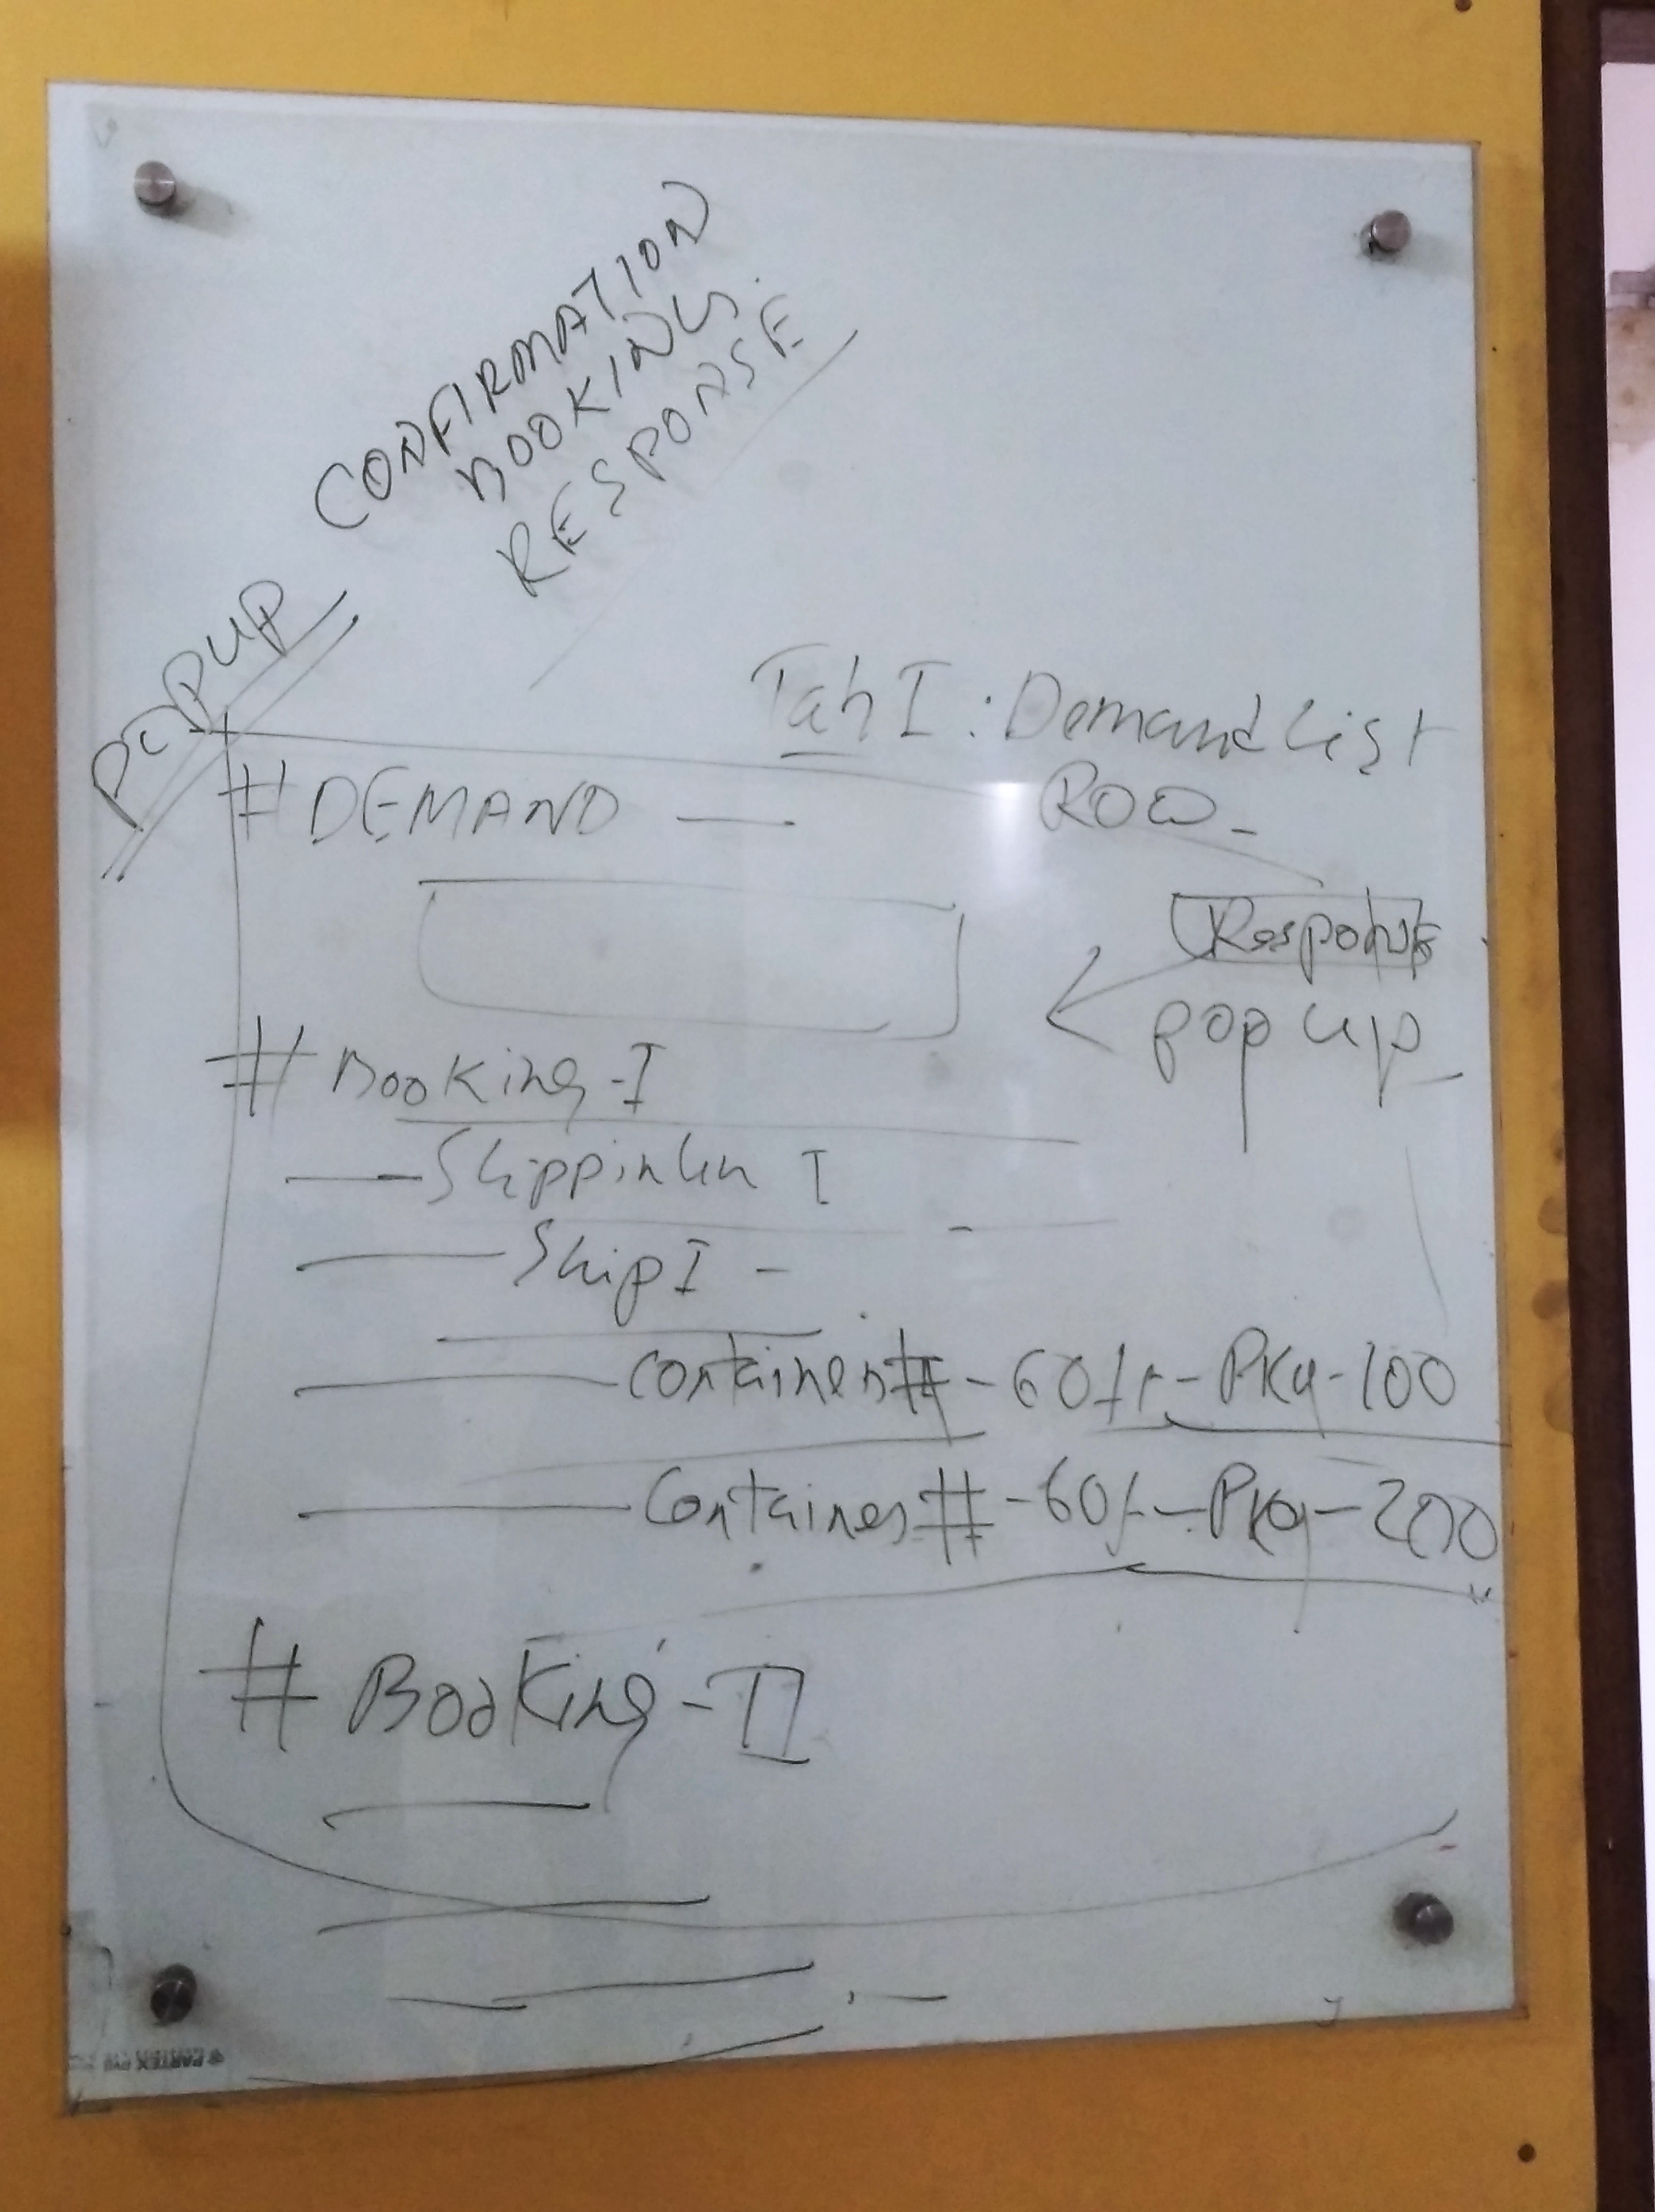 CONFIRMATION
BOOKING
RESPONSE
POPUP
Tab I : Demand List
ROW -
# DEMAND —
Response
pop up
# Booking - I
— Shippinlin I
— Ship I -
— Container # - 60ft - Pkg - 100
— Container # - 60f - Pkg - 200
# Booking - II